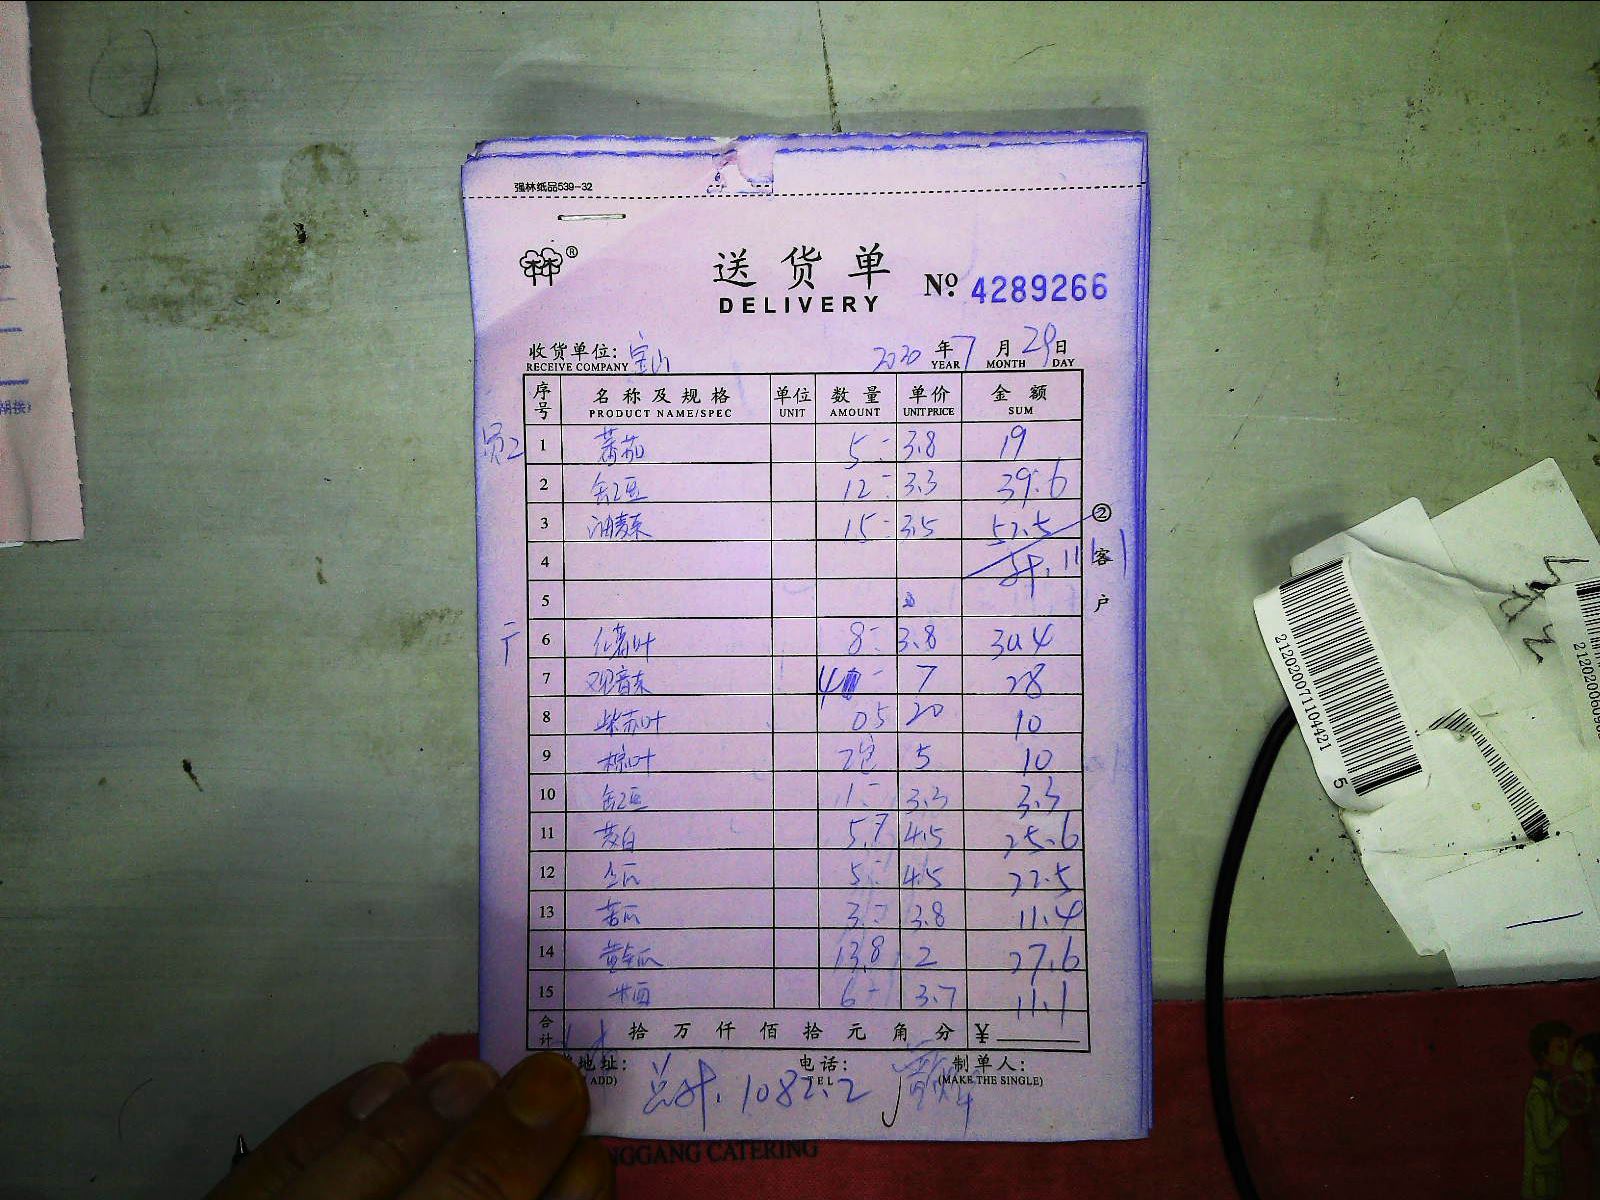 强林纸品539-32
林®
送货单
DELIVERY
No. 4289266
收货单位: 宝山 2020 年 7 月 29 日
RECEIVE COMPANY YEAR MONTH DAY
序号 名称及规格 单位 数量 单价 金额
PRODUCT NAME/SPEC UNIT AMOUNT UNIT PRICE SUM
员工 1 蕃茄 5- 3.8 19
2 缸豆 12- 3.3 39.6
3 油麦菜 15- 3.5 52.5
4 计.111.1
5
6 叶 8- 3.8 30.4
7 观音菜 4 - 7 28
8 紫苏叶 05 20 10
9 棕叶 2包 5 10
10 缸豆 1- 3.3 3.3
11 茭白 5.7 4.5 25.6
12 5- 4.5 22.5
13 苦瓜 3- 3.8 11.4
14 黄瓜 13.8 2 27.6
15 6- 3.7 11.1
②客户
合计 拾万仟佰拾元角分 ¥
地址: 电话: 制单人:
ADD) TEL (MAKE THE SINGLE)
总计.1082.2
NGGANG CATERING
2120200711104421
5